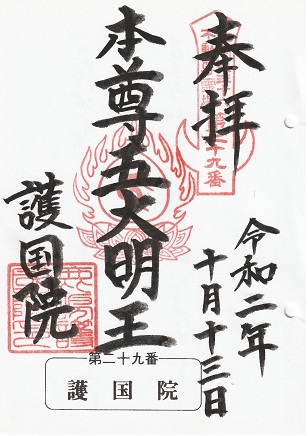 奉拝
令和二年
十月十三日
本尊五大明王
護国院
第二十九番
護国院